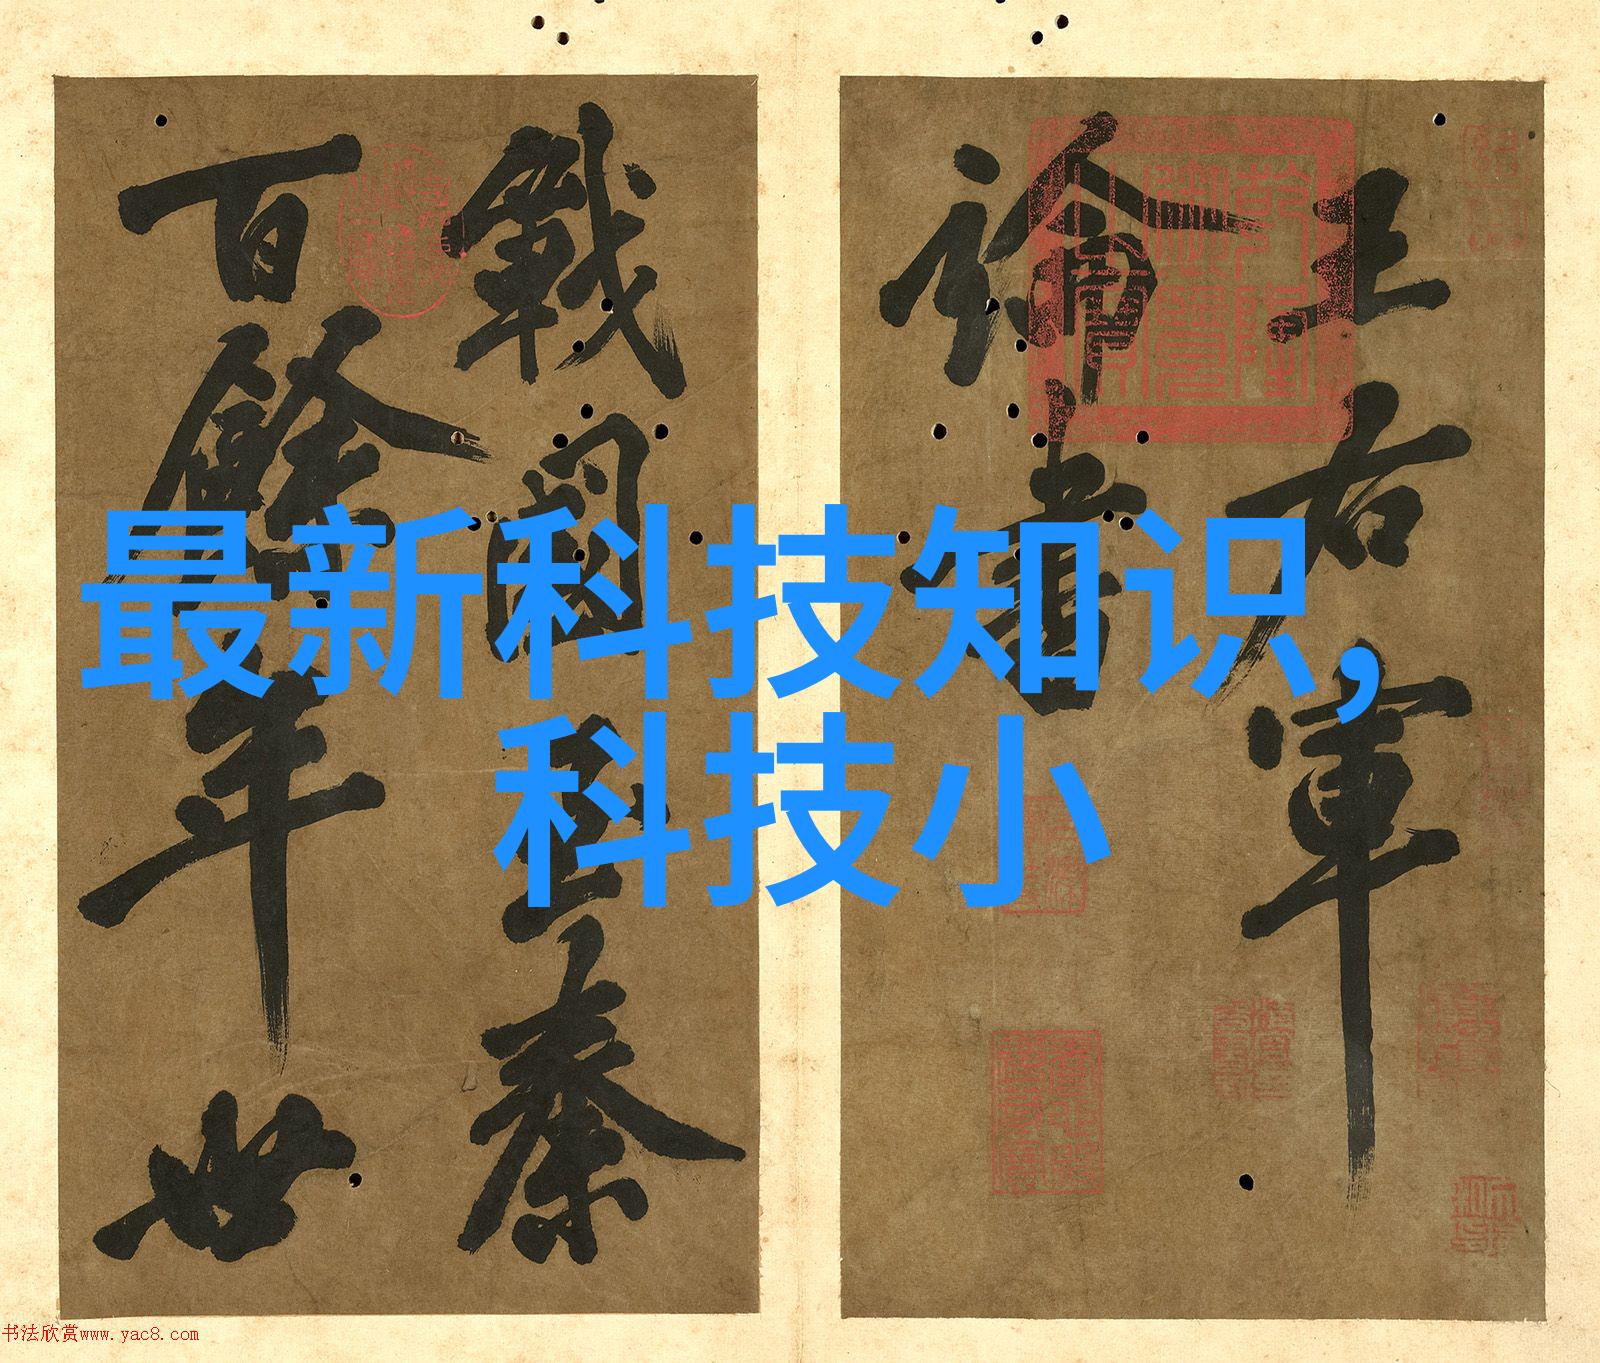 最新科技知识,
科技小
王右軍
論書
戰國至秦
百餘年世
书法欣赏www.yac8.com